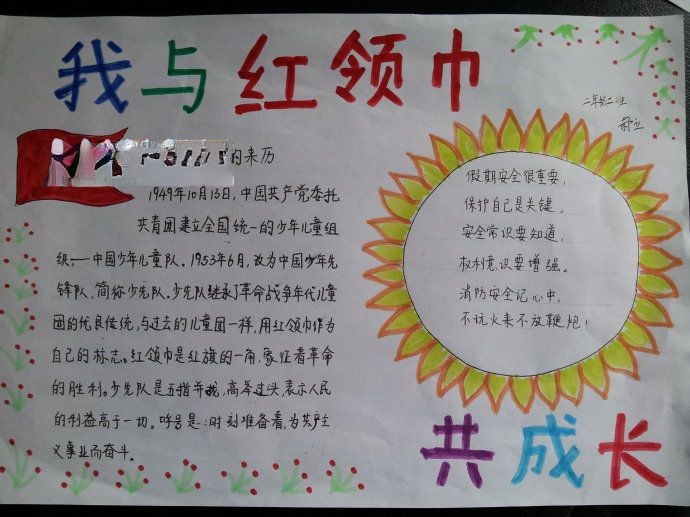 我与红领巾
二年级二班
的来历
1949年10月13日,中国共产党委托
共青团建立全国统一的少年儿童组
织——中国少年儿童队。1953年6月,改为中国少年先
锋队,简称少先队。少先队继承了革命战争年代儿童
团的优良传统,与过去的儿童团一样,用红领巾作为
自己的标志。红领巾是红旗的一角,象征着革命
的胜利。少先队是五指并拢,高举过头表示人民
的利益高于一切。呼号是:时刻准备着,为共产主
义事业而奋斗。
假期安全很重要,
保护自己是关键。
安全常识要知道,
权利意识要增强。
消防安全记心中,
不玩火来不放鞭炮!
共成长